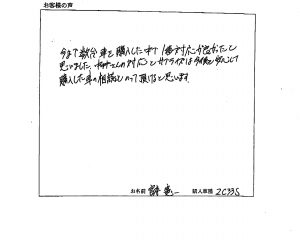 お客様の声
今まで数台車を購入した中で1番対応が良かったと
思いました。さんの対応とサプライズは今後も安心して
購入した車の相談にのって頂けると思います。
お名前
購入車種 ZC33S